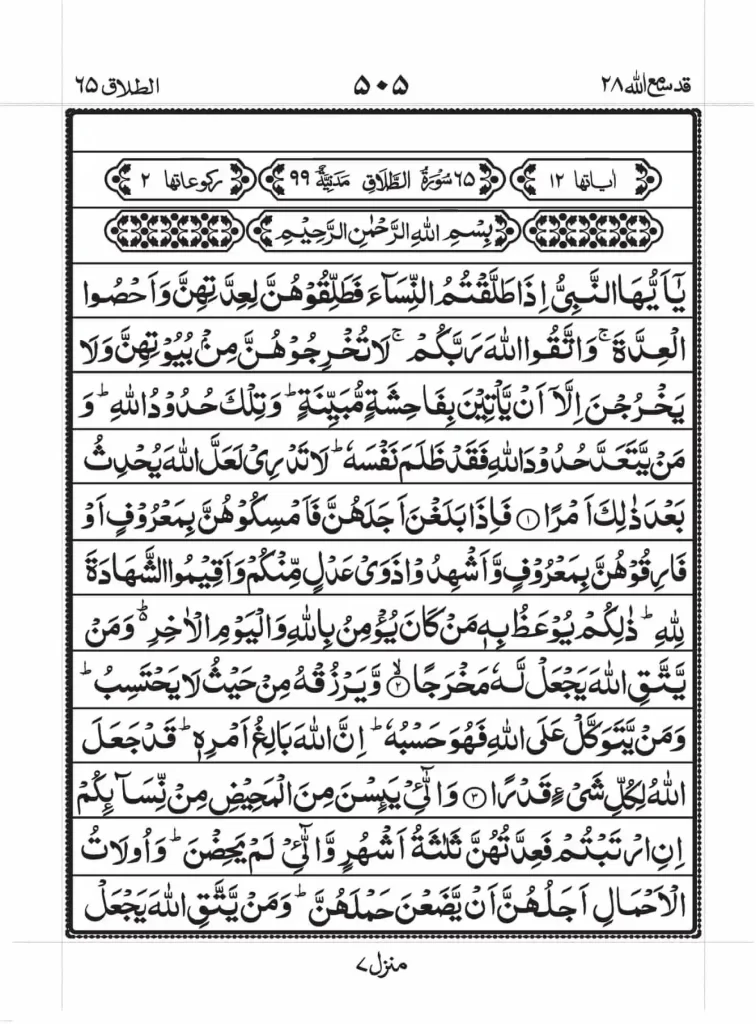 قد سمع الله ٢٨ ۵۰۵ الطلاق ٦۵
اياتها ١٢ ٦۵ سُوْرَةُ الطَّلَاقِ مَدَنِيَّةٌ ٩٩ ركوعاتها ٢
بِسْمِ اللهِ الرَّحْمٰنِ الرَّحِيْمِ
يٰٓاَيُّهَا النَّبِيُّ اِذَا طَلَّقْتُمُ النِّسَآءَ فَطَلِّقُوْهُنَّ لِعِدَّتِهِنَّ وَاَحْصُوا
الْعِدَّةَ ۚ وَاتَّقُوا اللهَ رَبَّكُمْ ۚ لَا تُخْرِجُوْهُنَّ مِنْۢ بُيُوْتِهِنَّ وَلَا
يَخْرُجْنَ اِلَّآ اَنْ يَّاْتِيْنَ بِفَاحِشَةٍ مُّبَيِّنَةٍ ؕ وَتِلْكَ حُدُوْدُ اللهِ ؕ وَ
مَنْ يَّتَعَدَّ حُدُوْدَ اللهِ فَقَدْ ظَلَمَ نَفْسَهٗ ؕ لَا تَدْرِيْ لَعَلَّ اللهَ يُحْدِثُ
بَعْدَ ذٰلِكَ اَمْرًا ۝١ فَاِذَا بَلَغْنَ اَجَلَهُنَّ فَاَمْسِكُوْهُنَّ بِمَعْرُوْفٍ اَوْ
فَارِقُوْهُنَّ بِمَعْرُوْفٍ وَّاَشْهِدُوْا ذَوَيْ عَدْلٍ مِّنْكُمْ وَاَقِيْمُوا الشَّهَادَةَ
لِلّٰهِ ؕ ذٰلِكُمْ يُوْعَظُ بِهٖ مَنْ كَانَ يُؤْمِنُ بِاللهِ وَالْيَوْمِ الْاٰخِرِ ۬ؕ وَمَنْ
يَّتَّقِ اللهَ يَجْعَلْ لَّهٗ مَخْرَجًا ۙ۝٢ وَّيَرْزُقْهُ مِنْ حَيْثُ لَا يَحْتَسِبُ ؕ
وَمَنْ يَّتَوَكَّلْ عَلَى اللهِ فَهُوَ حَسْبُهٗ ؕ اِنَّ اللهَ بَالِغُ اَمْرِهٖ ؕ قَدْ جَعَلَ
اللهُ لِكُلِّ شَيْءٍ قَدْرًا ۝٣ وَالّٰٓـِٔيْ يَئِسْنَ مِنَ الْمَحِيْضِ مِنْ نِّسَآئِكُمْ
اِنِ ارْتَبْتُمْ فَعِدَّتُهُنَّ ثَلٰثَةُ اَشْهُرٍ وَّالّٰٓـِٔيْ لَمْ يَحِضْنَ ؕ وَاُولَاتُ
الْاَحْمَالِ اَجَلُهُنَّ اَنْ يَّضَعْنَ حَمْلَهُنَّ ؕ وَمَنْ يَّتَّقِ اللهَ يَجْعَلْ
منزل ٧